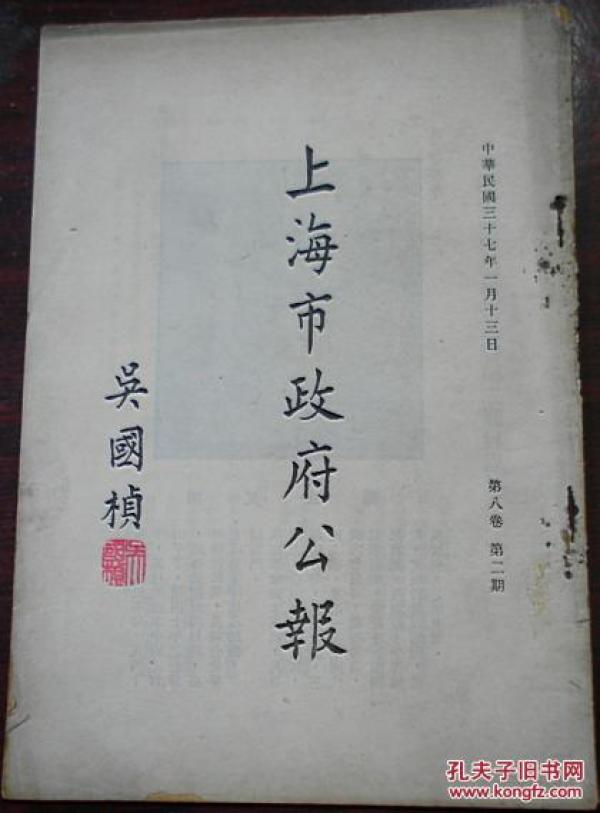 中華民國三十七年一月十三日
第八卷 第二期
上海市政府公報
吳國楨
孔夫子旧书网
www.kongfz.com